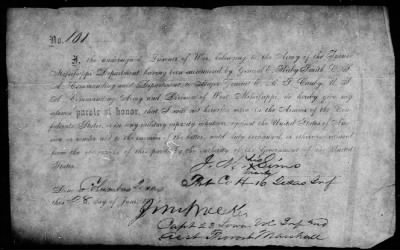 No. 101
I, the undersigned, Prisoner of War, belonging to the Army of the Trans-
Mississippi Department, having been surrendered by General E. Kirby Smith, C. S.
A., Commanding said Department, to Major General E. R. S. Canby, U. S.
A., Commanding Army and Division of West Mississippi, do hereby give my
solemn parole of honor, that I will not hereafter serve in the Armies of the Con-
federate States, or in any military capacity whatever, against the United States of Amer-
ica, or render aid to the enemies of the latter, until duly exchanged, or otherwise released
from the obligations of this parole by the authority of the Government of the United
States.
J. his Sims
mark
Pvt Co H 16 Texas Inf
Done at Columbus Texas
this 28 day of June
Capt 23 Iowa Vol Inf and
Provost Marshall